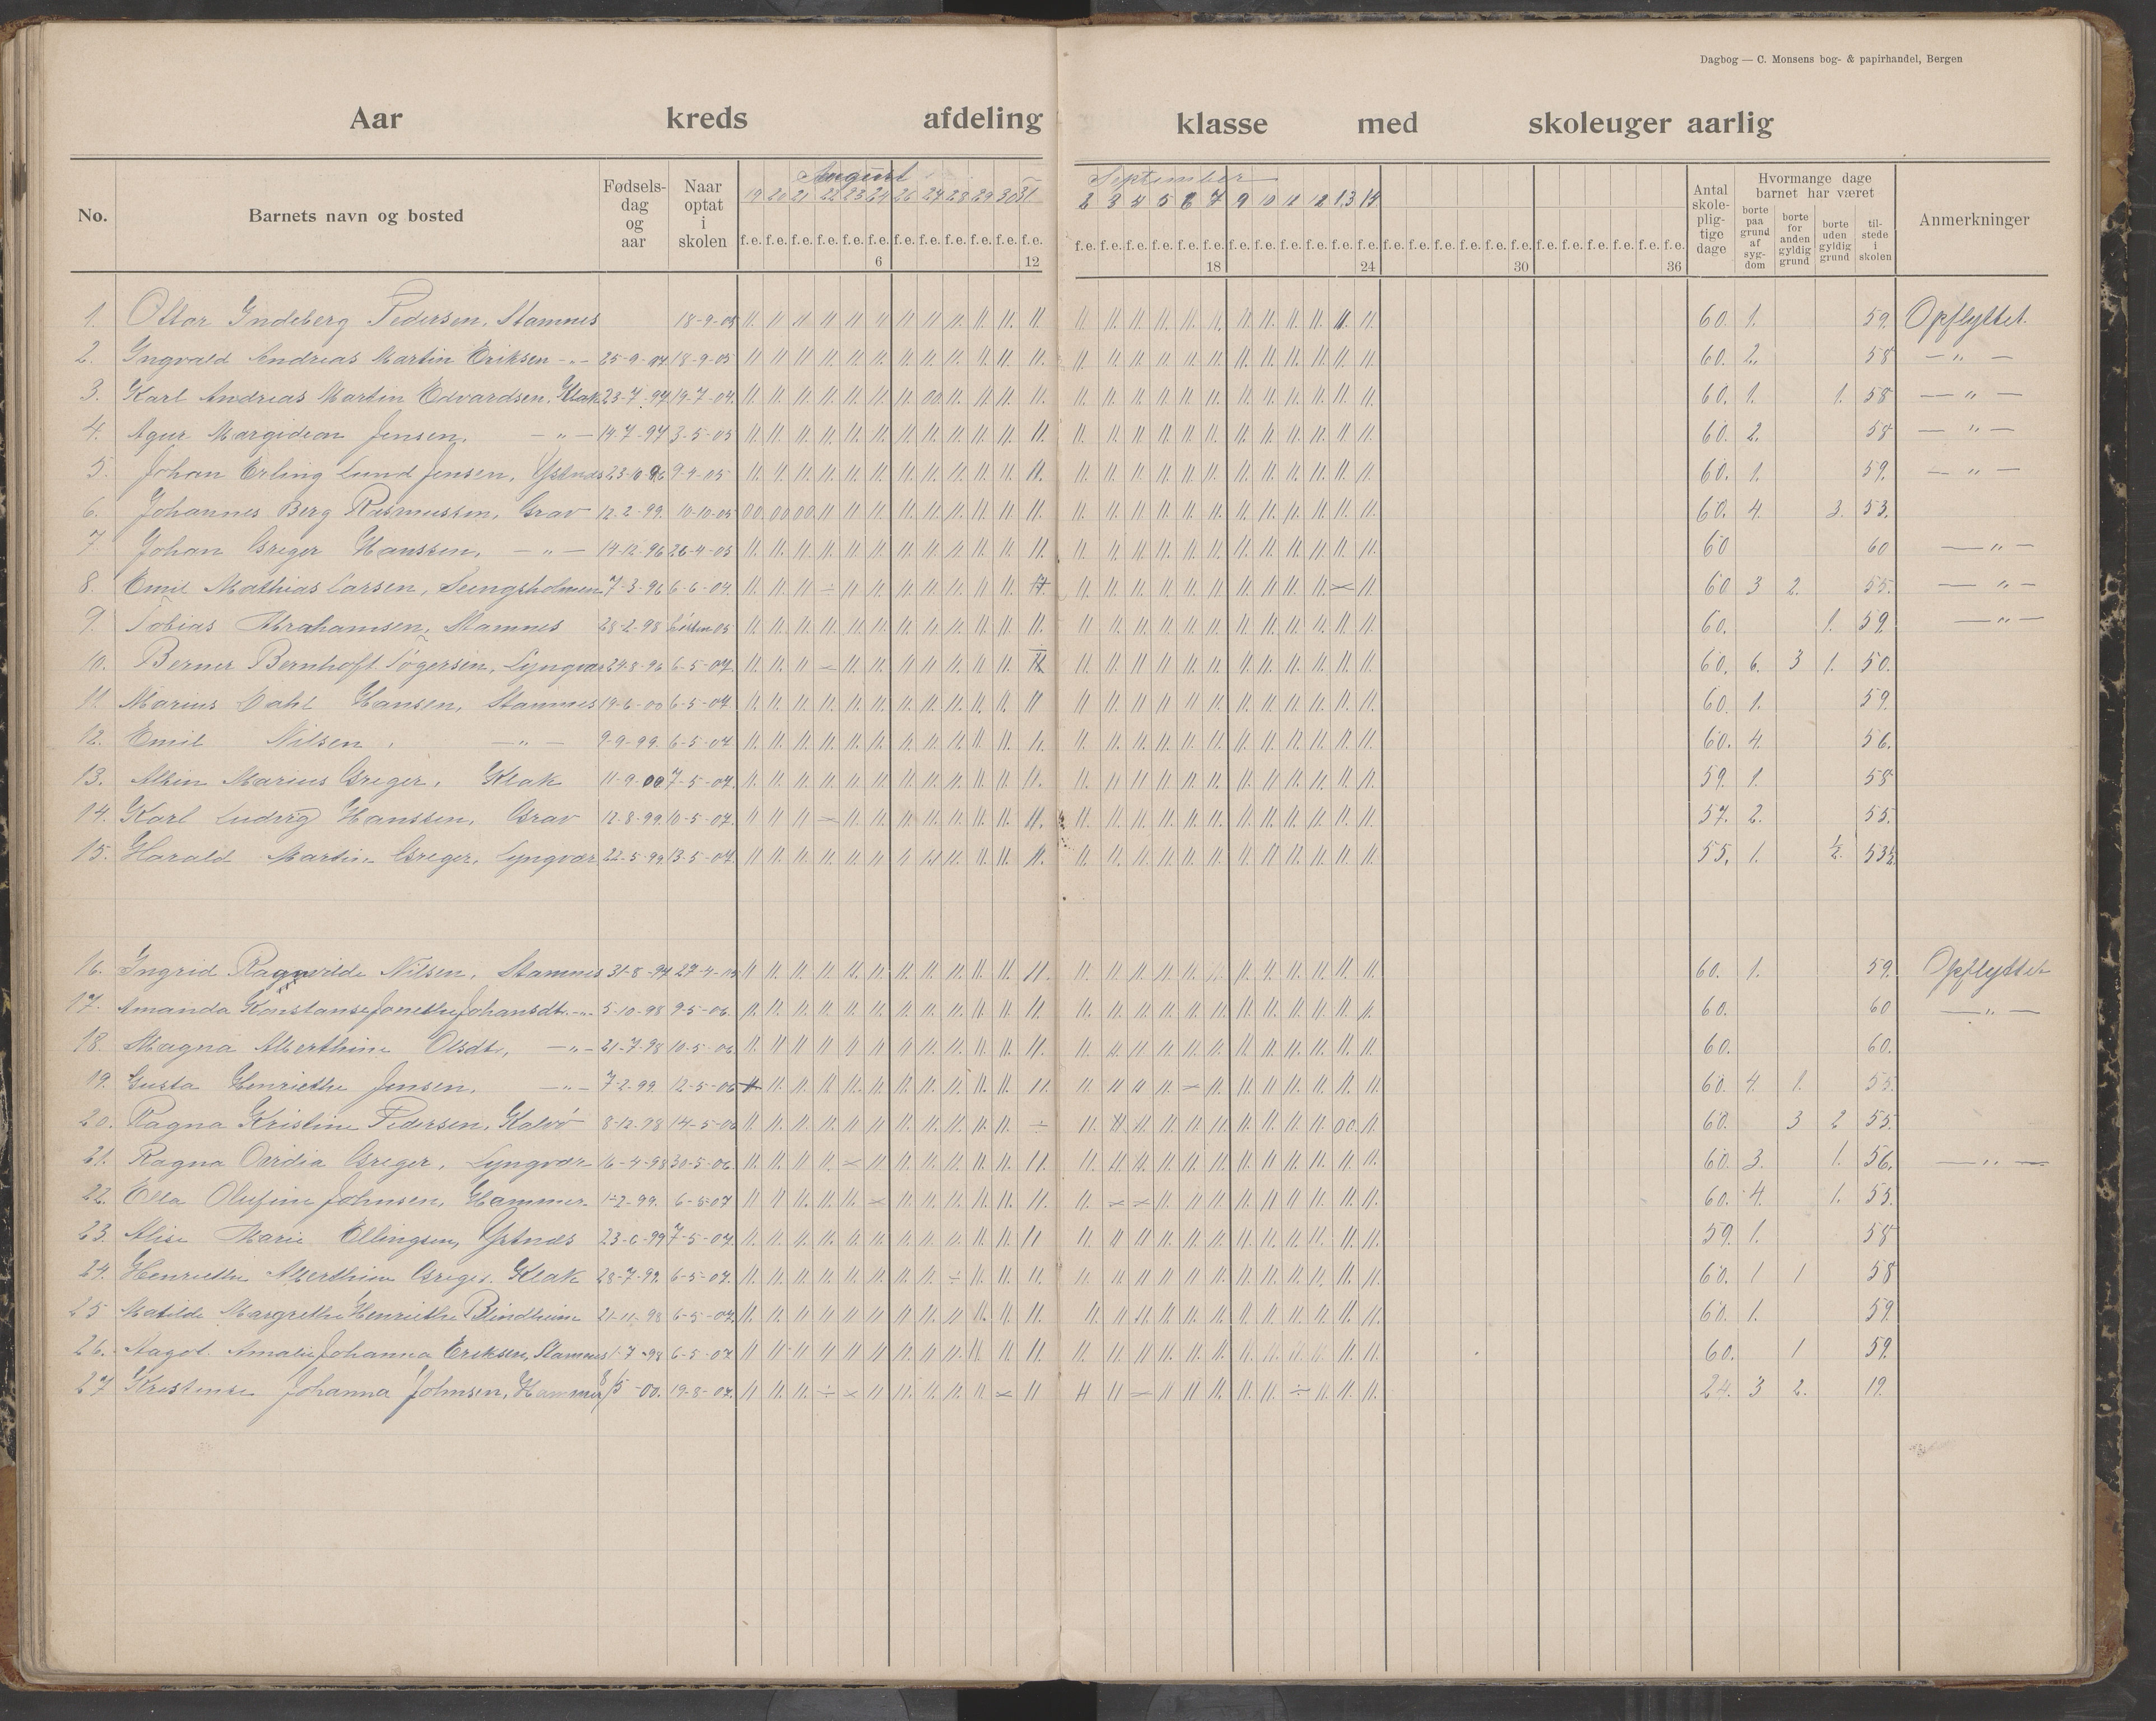 Dagbog — C. Monsens bog- & papirhandel, Bergen
Aar kreds afdeling klasse med skoleuger aarlig
No. Barnets navn og bosted Fødsels-dag og aar Naar optat i skolen August September Antal skole-plig-tige dage Hvormange dage barnet har været Anmerkninger
borte paa grund af syg-dom borte for anden gyldig grund borte uden gyldig grund til-stede i skolen
19 20 21 22 23 24 26 27 28 29 30 31 2 3 4 5 6 7 9 10 11 12 13 14
f. e. f. e. f. e. f. e. f. e. f. e. f. e. f. e. f. e. f. e. f. e. f. e. f. e. f. e. f. e. f. e. f. e. f. e. f. e. f. e. f. e. f. e. f. e. f. e. f. e. f. e. f. e. f. e. f. e. f. e. f. e. f. e. f. e. f. e. f. e. f. e.
6 12 18 24 30 36
1. Ottar Indeberg Pedersen, Stamnes 18-9-05 60. 1. 59. Opflyttet.
2. Ingvald Andreas Martin Eriksen -„- 25-9-94 18-9-05 60. 2. 58 -„-
3. Karl Andreas Martin Edvardsen, Klak 23-7-97 19-7-04. 60. 1. 1. 58 -„-
4. Agur Margideon Jensen, -„- 14-7-97 3-5-05 60. 2. 58 -„-
5. Johan Erling Lund Jensen, Ystnæs 23-10-96 9-4-05 60. 1. 59. -„-
6. Johannes Berg Rasmussen, Grav 12-2-99. 10-10-05 60. 4. 3. 53.
7 Johan Greger Hanssen, -„- 14-12-96 26-4-05 60 60 -„-
8. Emil Mathias Larsen, 7-3-96 6-6-04. 60 3 2. 55. -„-
9. Tobias Abrahamsen, Stamnes 28-2-98 60. 1. 59. -„-
10. Berner Bernhoft Togersen, Lyngvær 24-8-96 6-5-07. 60. 6. 3 1. 50.
11. Marius Dahl Hansen, Stamnes 19-6-00 6-5-07 60. 1. 59.
12. Emil Nilsen, -„- 9-9-99. 6-5-07 60. 4. 56.
13. Albin Marius Greger, Klak 11-9-00 7-5-07. 59. 1. 58
14. Karl Ludvig Hanssen, Grav 12-8-99. 10-5-07. 57. 2. 55.
15. Harald Martin Greger, Lyngvær 22-5-99 13-5-07. 55. 1. ½. 53½
16. Ingrid Ragnvilde Nilsen, Stamnes 31-8-97 27-4-05 60. 1. 59. Opflyttet
17. Amanda Konstanse Jonethe Johansdt. -„- 5-10-98 9-5-06. 60. 60 -„-
18. Magna Alberthine Olsdt, -„- 21-7-98 10-5-06 60. 60.
19. Gusta Henriethe Jensen, -„- 7-2-99. 12-5-06 60. 4. 1. 55.
20. Ragna Kristine Pedersen, Kalvø 8-12-98 14-5-06 60. 3 2 55.
21. Ragna Ovidia Greger, Lyngvær 16-4-98 30-5-06. 60. 3. 1. 56. -„-
22. Ella Olufine Johnsen, Hammer 1-2-99. 6-5-07 60. 4. 1. 55.
23. Alise Marie Ellingsen, Ystnæs 23-6-99 7-5-07. 59. 1. 58
24. Henriethe Alberthine Greger. Klak 28-7-99. 6-5-07. 60. 1 1 58
25 Matilde Margrethe Henriethe Blindheim 21-11-98 6-5-07. 60. 1. 59.
26. Aagot Amalie Johanna Eriksen, Stamnes 1-7-98 6-5-07 60. 1 59.
27 Kristense Johanna Johnsen, Hammer 8/5-00. 19-8-07. 24. 3 2. 19.